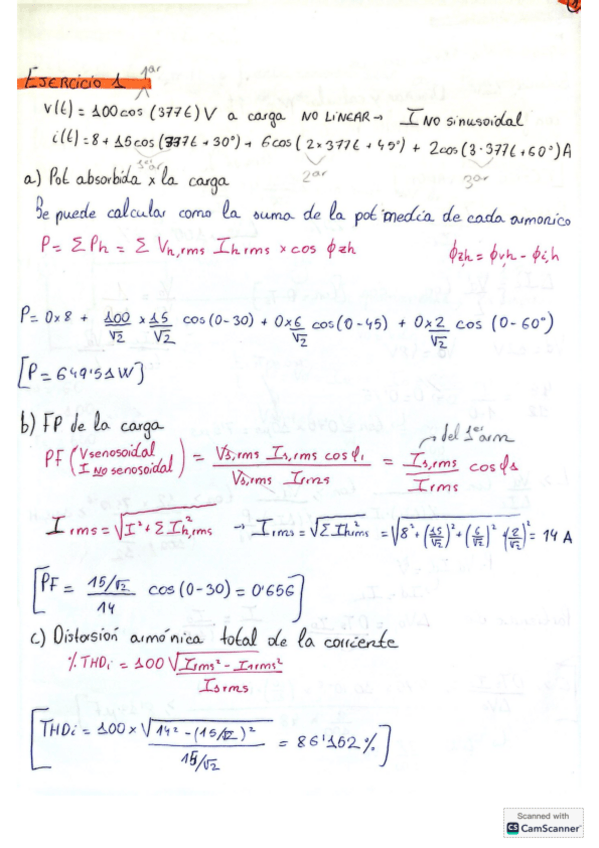 1
EJERCICIO 1 1ar
v(t) = 100cos(377t) V a carga NO LINEAR → I NO sinusoidal
i(t) = 8 + 15cos(377t + 30°) + 6cos(2×377t + 45°) + 2cos(3·377t + 60°) A
1er ar 2ar 3ar
a) Pot absorbida x la carga
Se puede calcular como la suma de la pot media de cada armonico
P = ΣPh = Σ Vh,rms Ih rms × cos ϕzh ϕzh = ϕvh - ϕi,h
P = 0×8 + 100/√2 × 15/√2 cos(0-30) + 0×6/√2 cos(0-45) + 0×2/√2 cos (0-60°)
[P = 649'51W]
b) FP de la carga
del 1er arm
PF (Vsenosoidal / I NO senosoidal) = Vs,rms Is,rms cosϕ1 / Vs,rms Irms = Is,rms / Irms cosϕ1
Irms = √I² + ΣI²h,rms → Irms = √ΣIh²rms = √8² + (15/√2)² + (6/√2)² + (2/√2)² = 14 A
[PF = 15/√2 / 14 cos(0-30) = 0'656]
c) Distorsión armónica total de la corriente
%THDi = 100 √Irms² - I1rms² / I1rms
[THDi = 100 × √14² - (15/√2)² / 15/√2 = 86'152%]
Scanned with
CS CamScanner